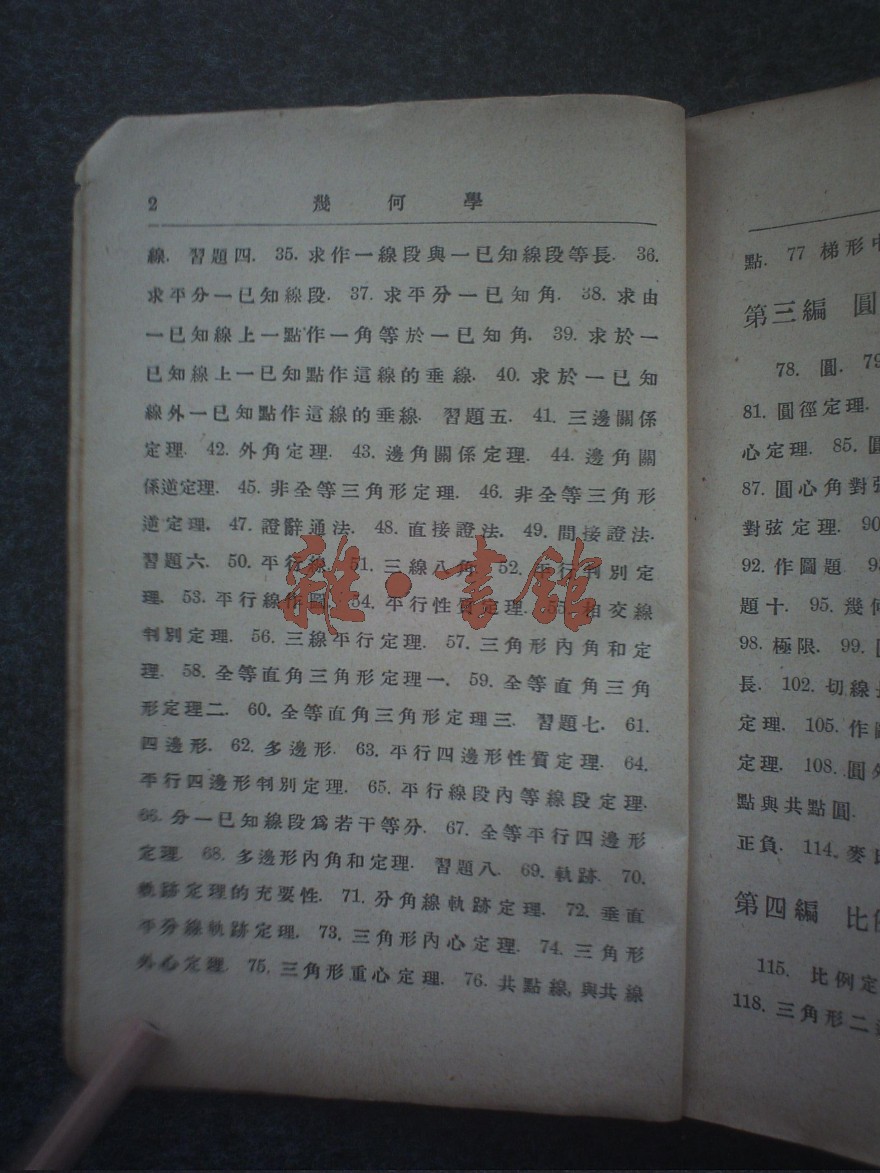 2 幾何學
線. 習題四. 35. 求作一線段與一已知線段等長. 36.
求平分一已知線段. 37. 求平分一已知角. 38. 求由
一已知線上一點作一角等於一已知角. 39. 求於一
已知線上一已知點作這線的垂線. 40. 求於一已知
線外一已知點作這線的垂線. 習題五. 41. 三邊關係
定理. 42. 外角定理. 43. 邊角關係定理. 44. 邊角關
係逆定理. 45. 非全等三角形定理. 46. 非全等三角形
逆定理. 47. 證辭通法. 48. 直接證法. 49. 間接證法.
習題六. 50. 平行線. 51. 三線八角. 52. 平行判別定
理. 53. 平行線作圖. 54. 平行性質定理. 55. 相交線
判別定理. 56. 三線平行定理. 57. 三角形內角和定
理. 58. 全等直角三角形定理一. 59. 全等直角三角
形定理二. 60. 全等直角三角形定理三. 習題七. 61.
四邊形. 62. 多邊形. 63. 平行四邊形性質定理. 64.
平行四邊形判別定理. 65. 平行線段內等線段定理.
66. 分一已知線段爲若干等分. 67. 全等平行四邊形
定理. 68. 多邊形內角和定理. 習題八. 69. 軌跡. 70.
軌跡定理的充要性. 71. 分角線軌跡定理. 72. 垂直
平分線軌跡定理. 73. 三角形內心定理. 74. 三角形
外心定理. 75. 三角形重心定理. 76. 共點線, 與共線
雜·書館
點. 77 梯形中
第三編 圓
78. 圓. 79
81. 圓徑定理.
心定理. 85. 圓
87. 圓心角對弦
對弦定理. 90
92. 作圖題
題十. 95. 幾何
98. 極限. 99.
長. 102. 切線長
定理. 105. 作圖
定理. 108. 圓外
點與共點圓.
正負. 114. 麥氏
第四編 比例
115. 比例定
118. 三角形二